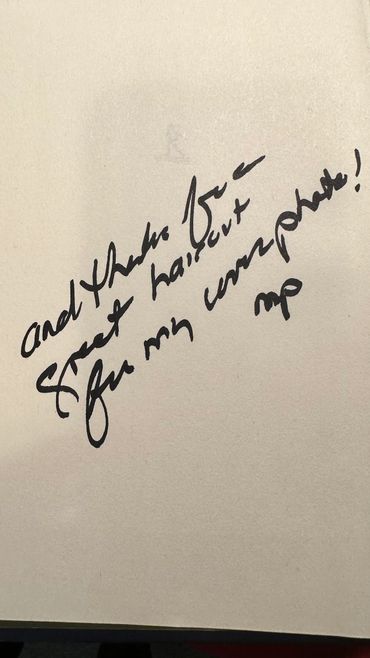 and thanks for a
great haircut
for my cover photo!
mp